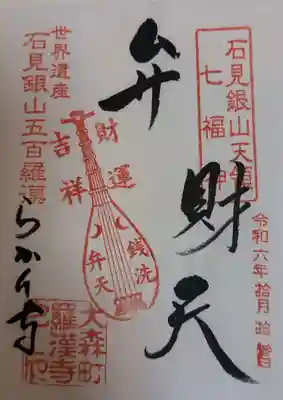 石見銀山天領
七福神
弁財天
令和六年拾月拾一日
世界遺産
石見銀山五百羅漢
吉祥
財運
銭洗
弁天
らかん寺
大森町
羅漢寺